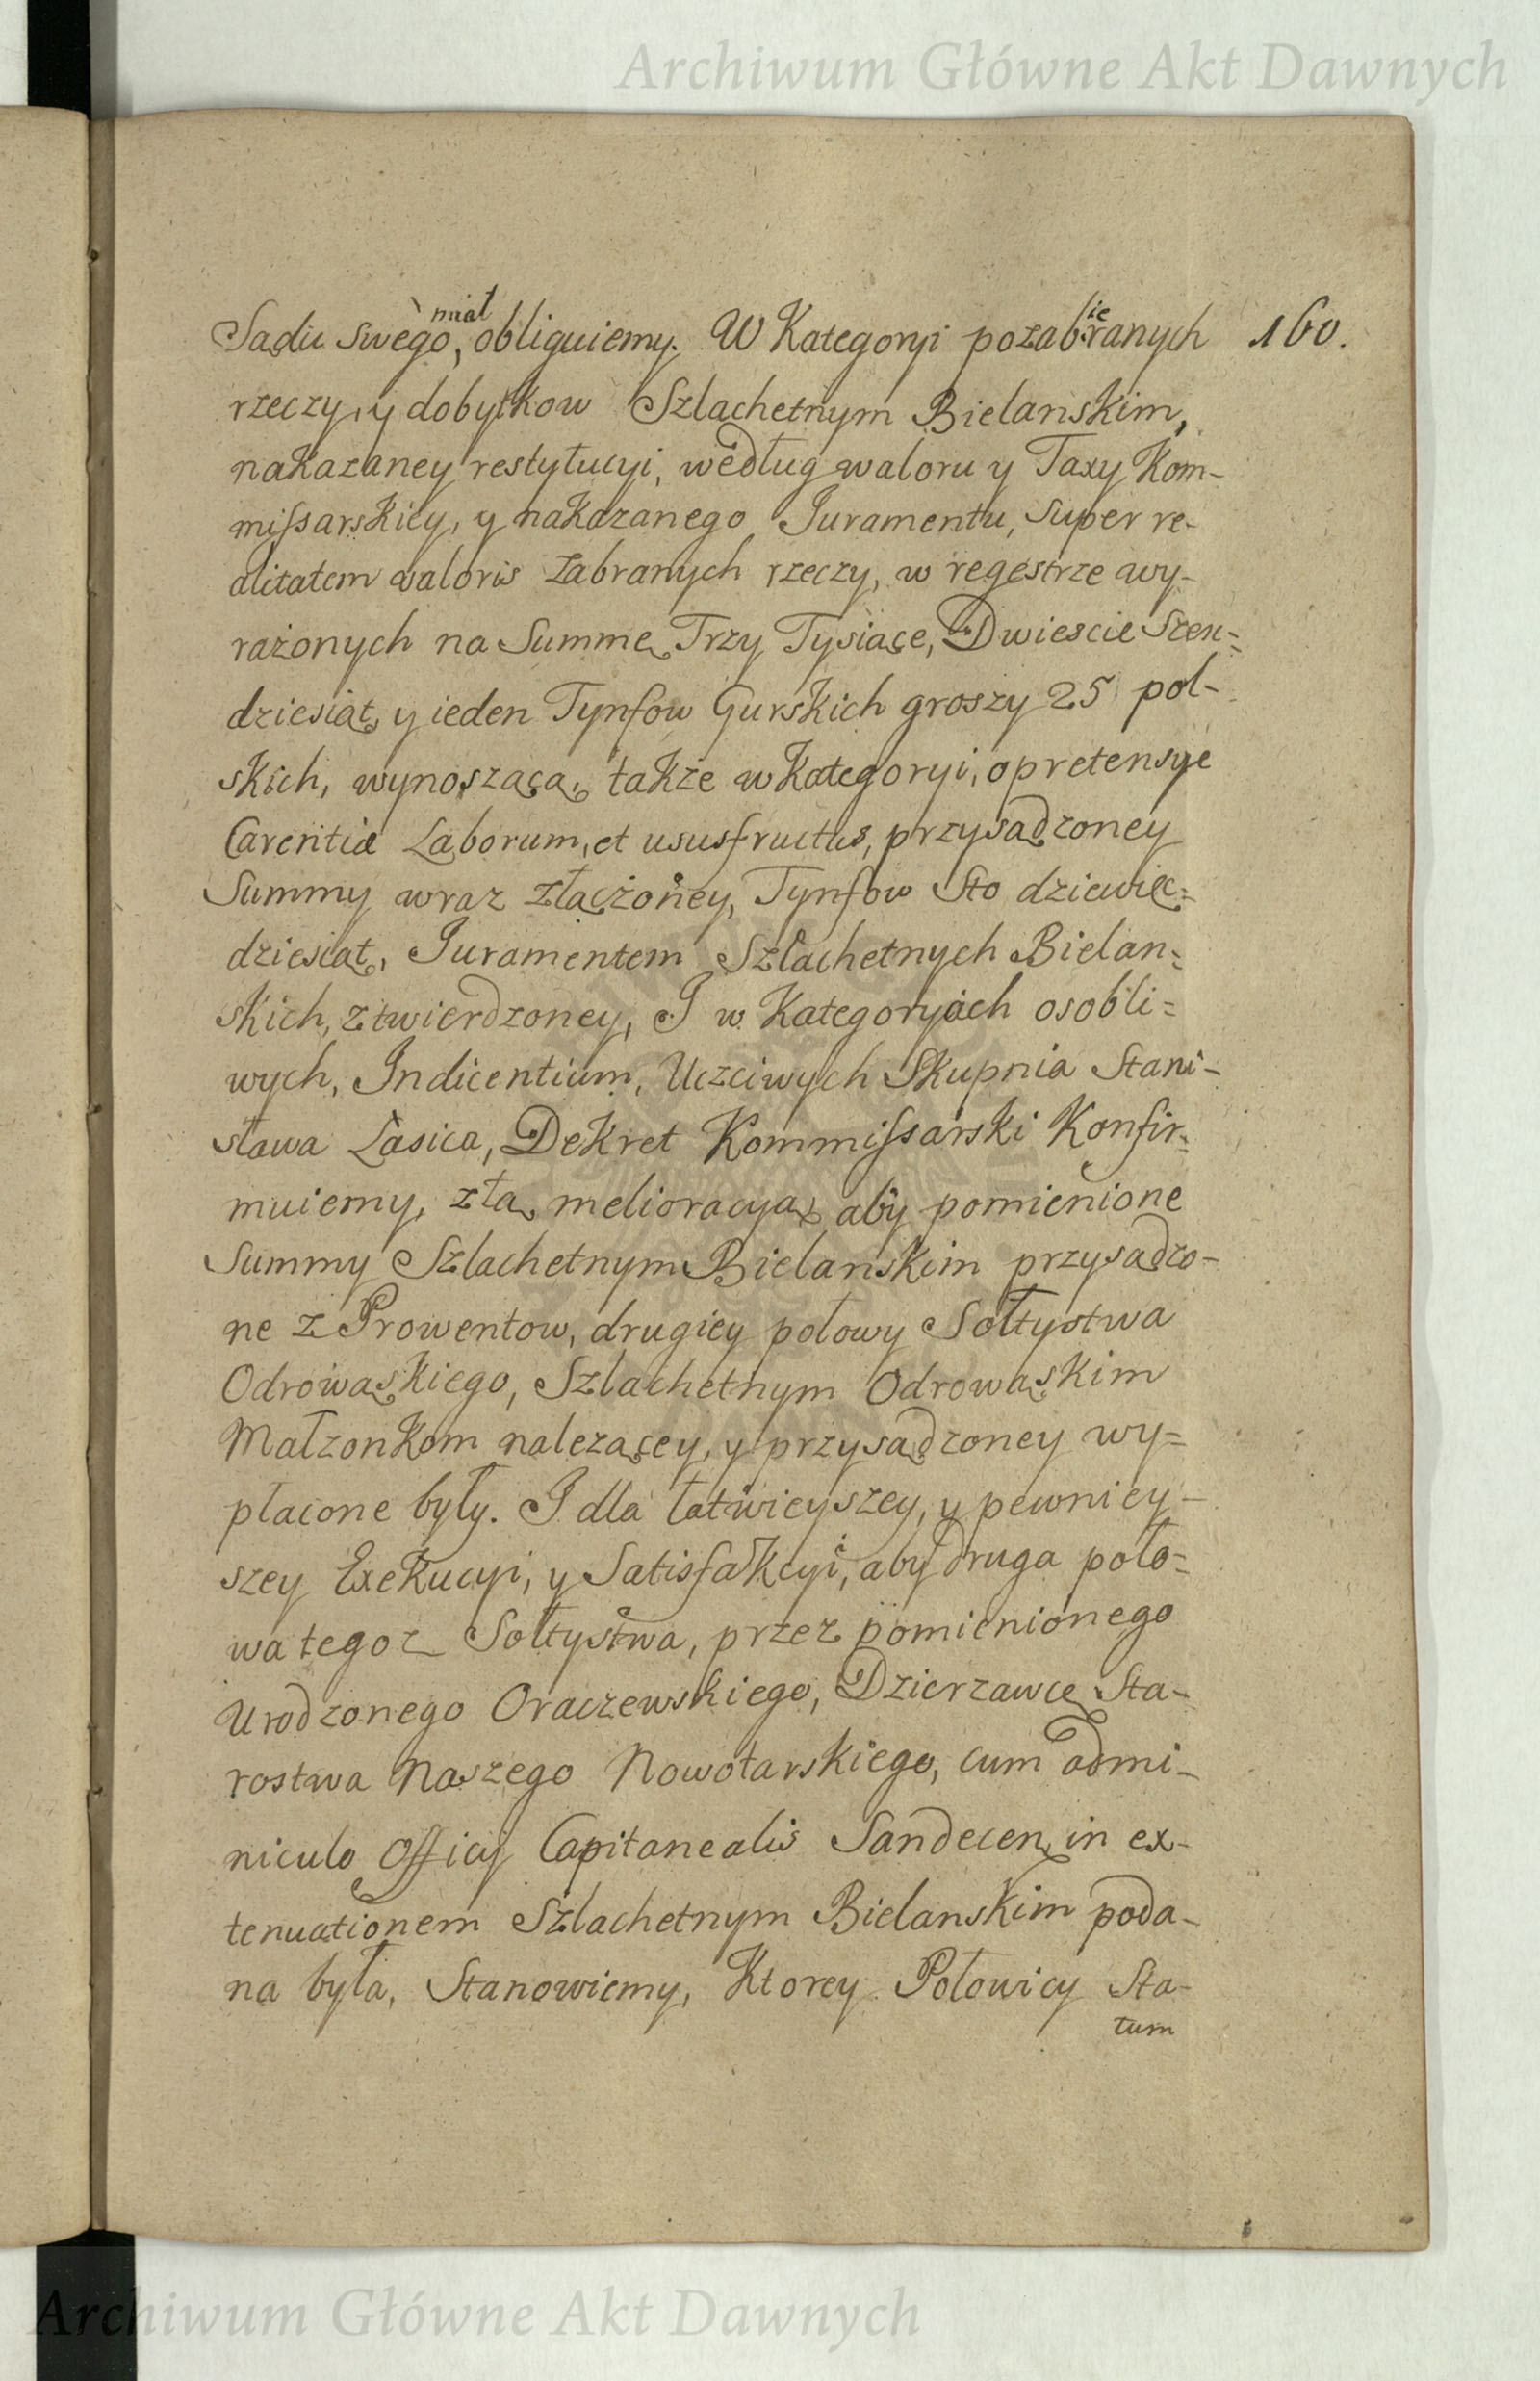 Archiwum Główne Akt Dawnych
160.
Sądu swego, miał obliguiemy. W Kategoryi pozabieranych
rzeczy, y dobytkow Szlachetnym Bielanskim,
nakazaney restytucyi, według waloru y Taxy Kom-
missarskiey, y nakazanego Juramentu, Super re-
alitatem valoris zabranych rzeczy, w regestrze wy-
rażonych na Summę Trzy Tysiące, Dwiescie Szes-
dziesiąt, y ieden Tynfow Gurskich groszy 25 pol-
skich, wynosząca, także w Kategoryi, o pretensye
Carentiæ Laborum, et ususfructus, przysądzoney
Summy wraz złączoney, Tynfow Sto dziewięc=
dziesiąt, Juramentem Szlachetnych Bielan=
skich, ztwierdzoney, J w Kategoryach osobli=
wych, Indicentium, Uczciwych Skupnia Stani-
sława Lasica, Dekret Kommissarski Konfir=
muiemy, z tą, melioracyą, aby pomienione
Summy Szlachetnym Bielanskim przysądzo-
ne z Prowentow, drugiey połowy Sołtystwa
Odrowąskiego, Szlachetnym Odrowąskim
Małzonkom nalezącey, y przysądzoney wy=
płacone były. J dla łatwieyszey, y pewniey-
szey Exekucyi, y Satisfakcyi, aby druga poło=
wa tegoz Sołtystwa, przez pomienionego
Urodzonego Oraczewskiego, Dzierzawcę Sta-
rostwa Naszego Nowotarskiego, cum admi-
niculo Officij Capitanealis Sandecen, in ex-
tenuationem Szlachetnym Bielanskim poda-
na była, Stanowiemy, Ktorey Połowicy Sta-
tum
Archiwum Główne Akt Dawnych